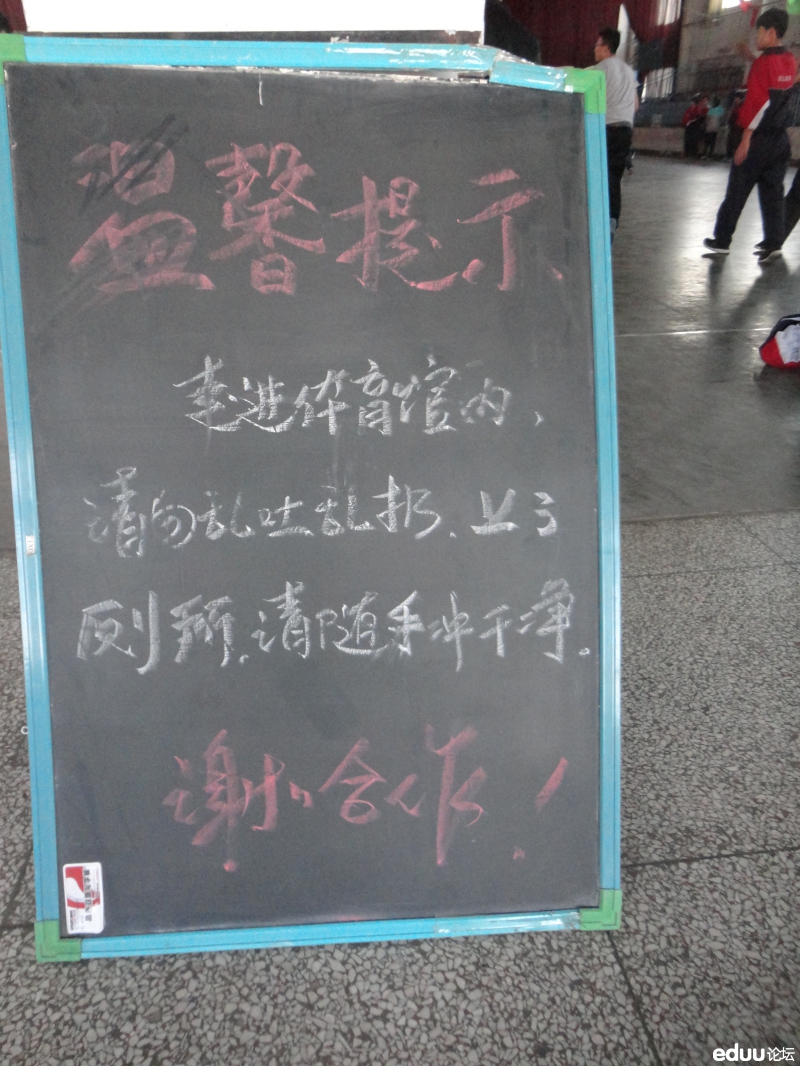 温馨提示
来进体育馆内、
请勿乱吐乱扔、上了
厕所、请随手冲干净。
谢谢合作！
eduu论坛